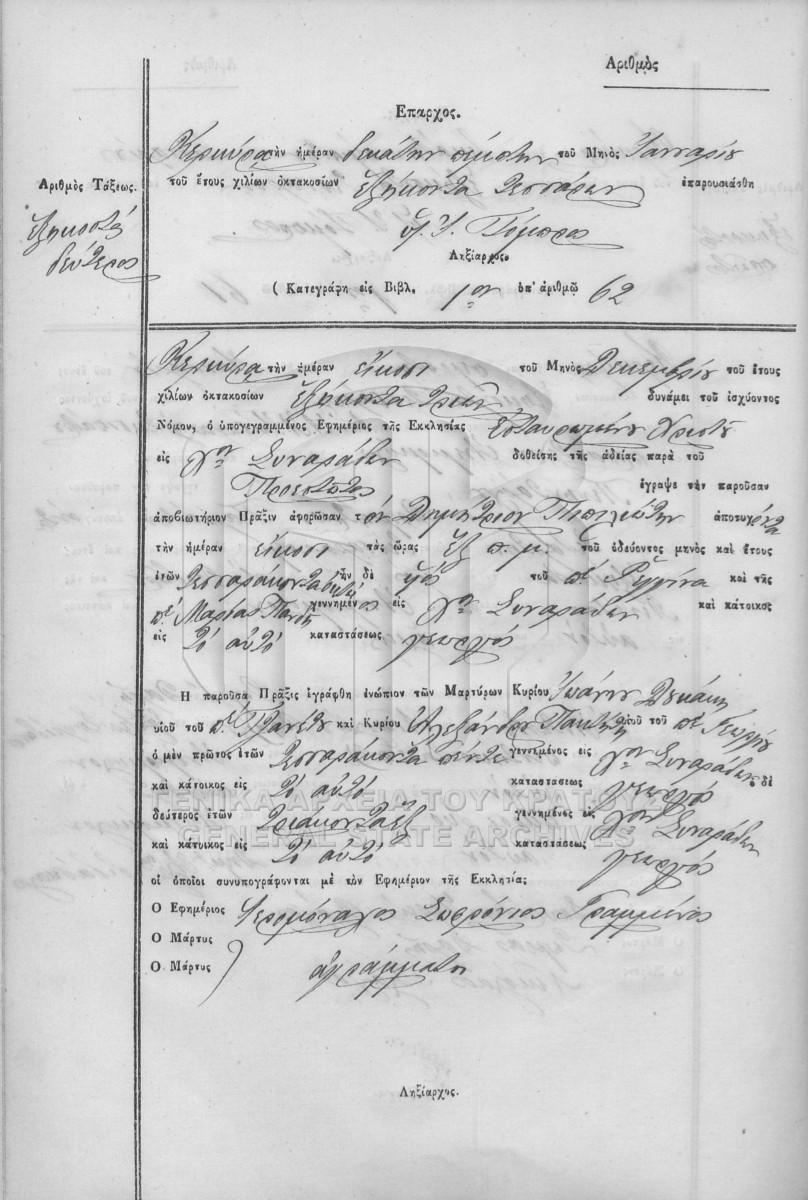 Αριθμὸς
Επαρχος.
Κερκύρᾳ τὴν ἡμέραν δεκάτην πέμπτην τοῦ Μηνὸς Ἰανναρίου
Αριθμὸς Τάξεως.
τοῦ ἔτους χιλίων ὀκτακοσίων ἑξήκοντα τεσσάρων ἐπαρουσιάσθη
ἑξηκοστὸς
δεύτερος
Ληξίαρχος.
( Κατεγράφη εἰς Βιβλ. 1ον ὑπ' ἀριθμῷ 62
Κερκύρᾳ τὴν ἡμέραν εἴκοσι τοῦ Μηνὸς Δεκεμβρίου τοῦ ἔτους
χιλίων ὀκτακοσίων ἑξήκοντα τριῶν δυνάμει τοῦ ἰσχύοντος
Νόμου, ὁ ὑπογεγραμμένος Εφημέριος τῆς Εκκλησίας Ἐσταυρωμένου Χριστοῦ
εἰς χον Συναράδων δοθείσης τῆς ἀδείας παρὰ τοῦ
Προεστῶτος ἔγραψε τὴν παροῦσαν
ἀποβιωτήριον Πρᾶξιν ἀφορῶσαν τὸν Δημήτριον ἀποτυχόντα
τὴν ἡμέραν εἴκοσι τὰς ὥρας ἓξ π. μ. τοῦ ὁδεύοντος μηνὸς καὶ ἔτους
ἐτῶν τὴν δὲ υἱὸς τοῦ πὲ Ρεγγίνα καὶ τῆς
πὲ Μαρίας γεννημένος εἰς χον Συναράδων καὶ κάτοικος
εἰς τὸ αὐτὸ καταστάσεως γεωργός
Η παροῦσα Πρᾶξις ἐγράφθη ἐνώπιον τῶν Μαρτύρων Κυρίου Ἰωάννου Δουκάκη
υἱοῦ τοῦ καὶ Κυρίου Ἀλεξάνδρου υἱοῦ τοῦ πὲ Γεωργίου
ὁ μὲν πρῶτος ἐτῶν τεσσαράκοντα πέντε γεννημένος εἰς χον Συναράδων ὁ δὲ
καὶ κάτοικος εἰς τὸ αὐτὸ καταστάσεως γεωργός
δεύτερος ἐτῶν τριάκοντα ἓξ γεννημένος εἰς χον Συναράδων
καὶ κάτοικος εἰς τὸ αὐτὸ καταστάσεως γεωργός
οἱ ὁποῖοι συνυπογράφονται μὲ τὸν Εφημέριον τῆς Εκκλησίας
Ο Εφημέριος Ἱερομόναχος Σωφρόνιος Γραμμένος
Ο Μάρτυς
Ο Μάρτυς ) ἀγράμματοι
Ληξίαρχος.
ΓΕΝΙΚΑ ΑΡΧΕΙΑ ΤΟΥ ΚΡΑΤΟΥΣ
GENERAL STATE ARCHIVES